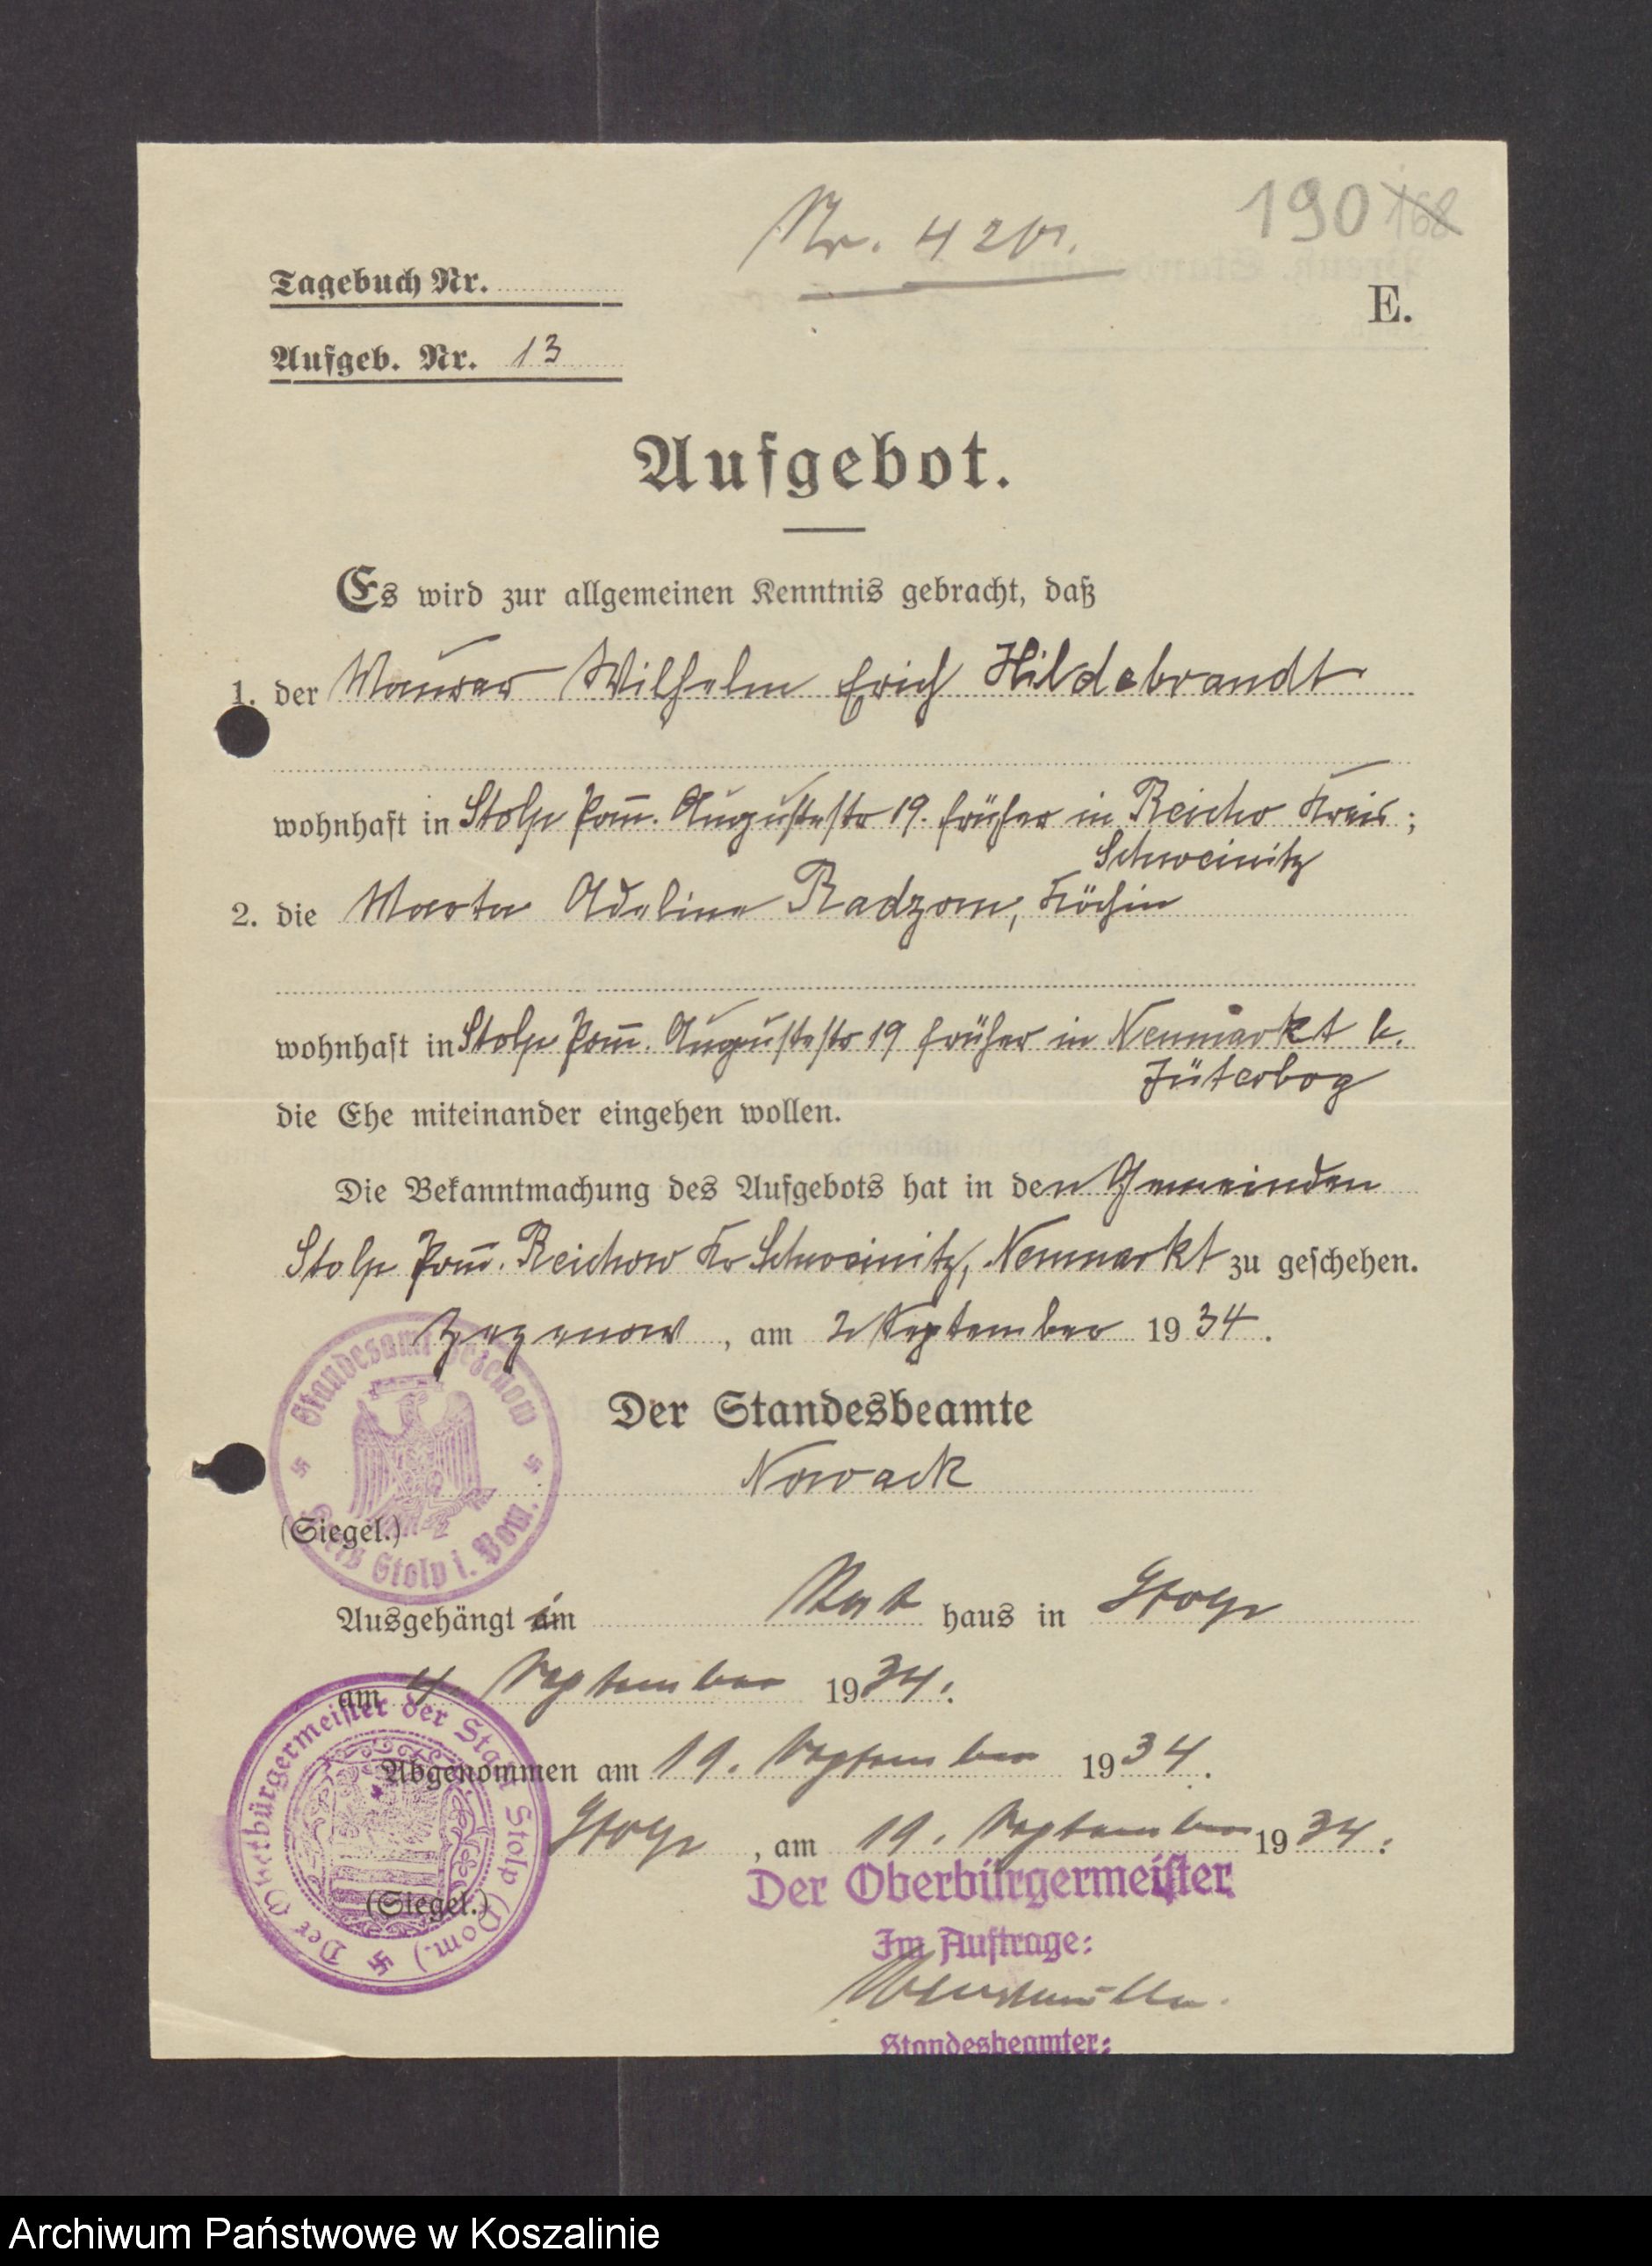 Nr. 420.
190 168
Tagebuch Nr.
E.
Aufgeb. Nr. 13
Aufgebot.
Es wird zur allgemeinen Kenntnis gebracht, daß
1. der Maurer Wilhelm Erich Hildebrandt
wohnhaft in Stolp Pom̅. Augustastr 19. früher in Reicho Kreis;
Schweinitz
2. die Marta Adeline Radzom, Köchin
wohnhaft in Stolp Pom̅. Augustastr 19 früher in Neumarkt b.
Jüterbog
die Ehe miteinander eingehen wollen.
Die Bekanntmachung des Aufgebots hat in den Gemeinden
Stolp Pom̅. Reichow Kr Schweinitz, Neumarkt zu geschehen.
Zezenow, am 2 September 1934.
Standesamt Zezenow
Kreis Stolp i. Pom.
Der Standesbeamte
Nowack
(Siegel.)
Ausgehängt im Rathaus in Stolp
am 4. September 1934.
Abgenommen am 19. September 1934.
Stolp, am 19. September 1934.
Der Oberbürgermeister der Stadt Stolp (Pom.)
(Siegel.)
Der Oberbürgermeister
Im Auftrage:
Standesbeamter:
Archiwum Państwowe w Koszalinie